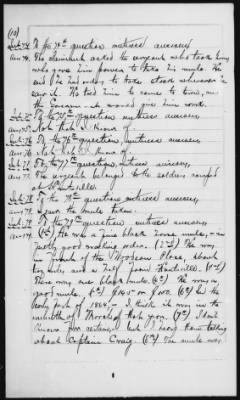 (10)
Int 74 To the 74th question witness answers
Ans 74. The claimant asked the sergeant who took him
who gave him power to take his mule. He
said he had orders to take stock wherever he
saw it. He told him to come to town, and
the Governor it would give him
Int 75 To the 75th question witness answers
Ans 75. Not that I know of.
Int 76 To the 76th question, witness answers,
Ans 76 Not that I know of.
Int 77 To the 77th question, witness answers,
Ans 77 The sergeant belonged to the soldiers camped
at Huntsville.
Int 78 To the 78th question witness answers,
Ans 78 I saw the mule taken.
Int 79 To the 79th question witness answers
Ans 79. (1st) He was a fine black horse mule, in
pretty good working order. (2nd) He was
in front of the Place, about
one mile and a half from Huntsville. (3rd)
There was one black mule. (4th) He was a
good mule. (5th) $165 or $170. (6th) In the
early part of 1864,— I think it was in the
month of March of that year. (7th) I don't
know for certain but I heard them talking
about Captain Craig. (8th) The mule was